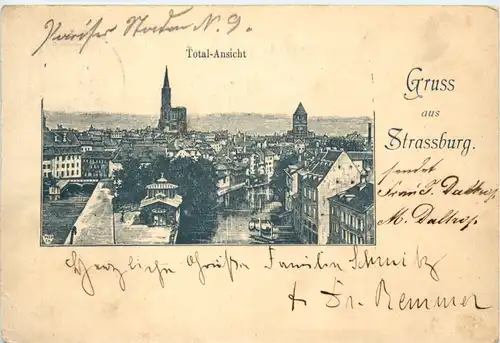 Pariser Staden N. 9.
Total-Ansicht
Gruss
aus
Strassburg.
sendet
Frau J. Dalhof
M. Dalhof
Herzliche Grüße Familie Schmitz
+ Fr. Remmer